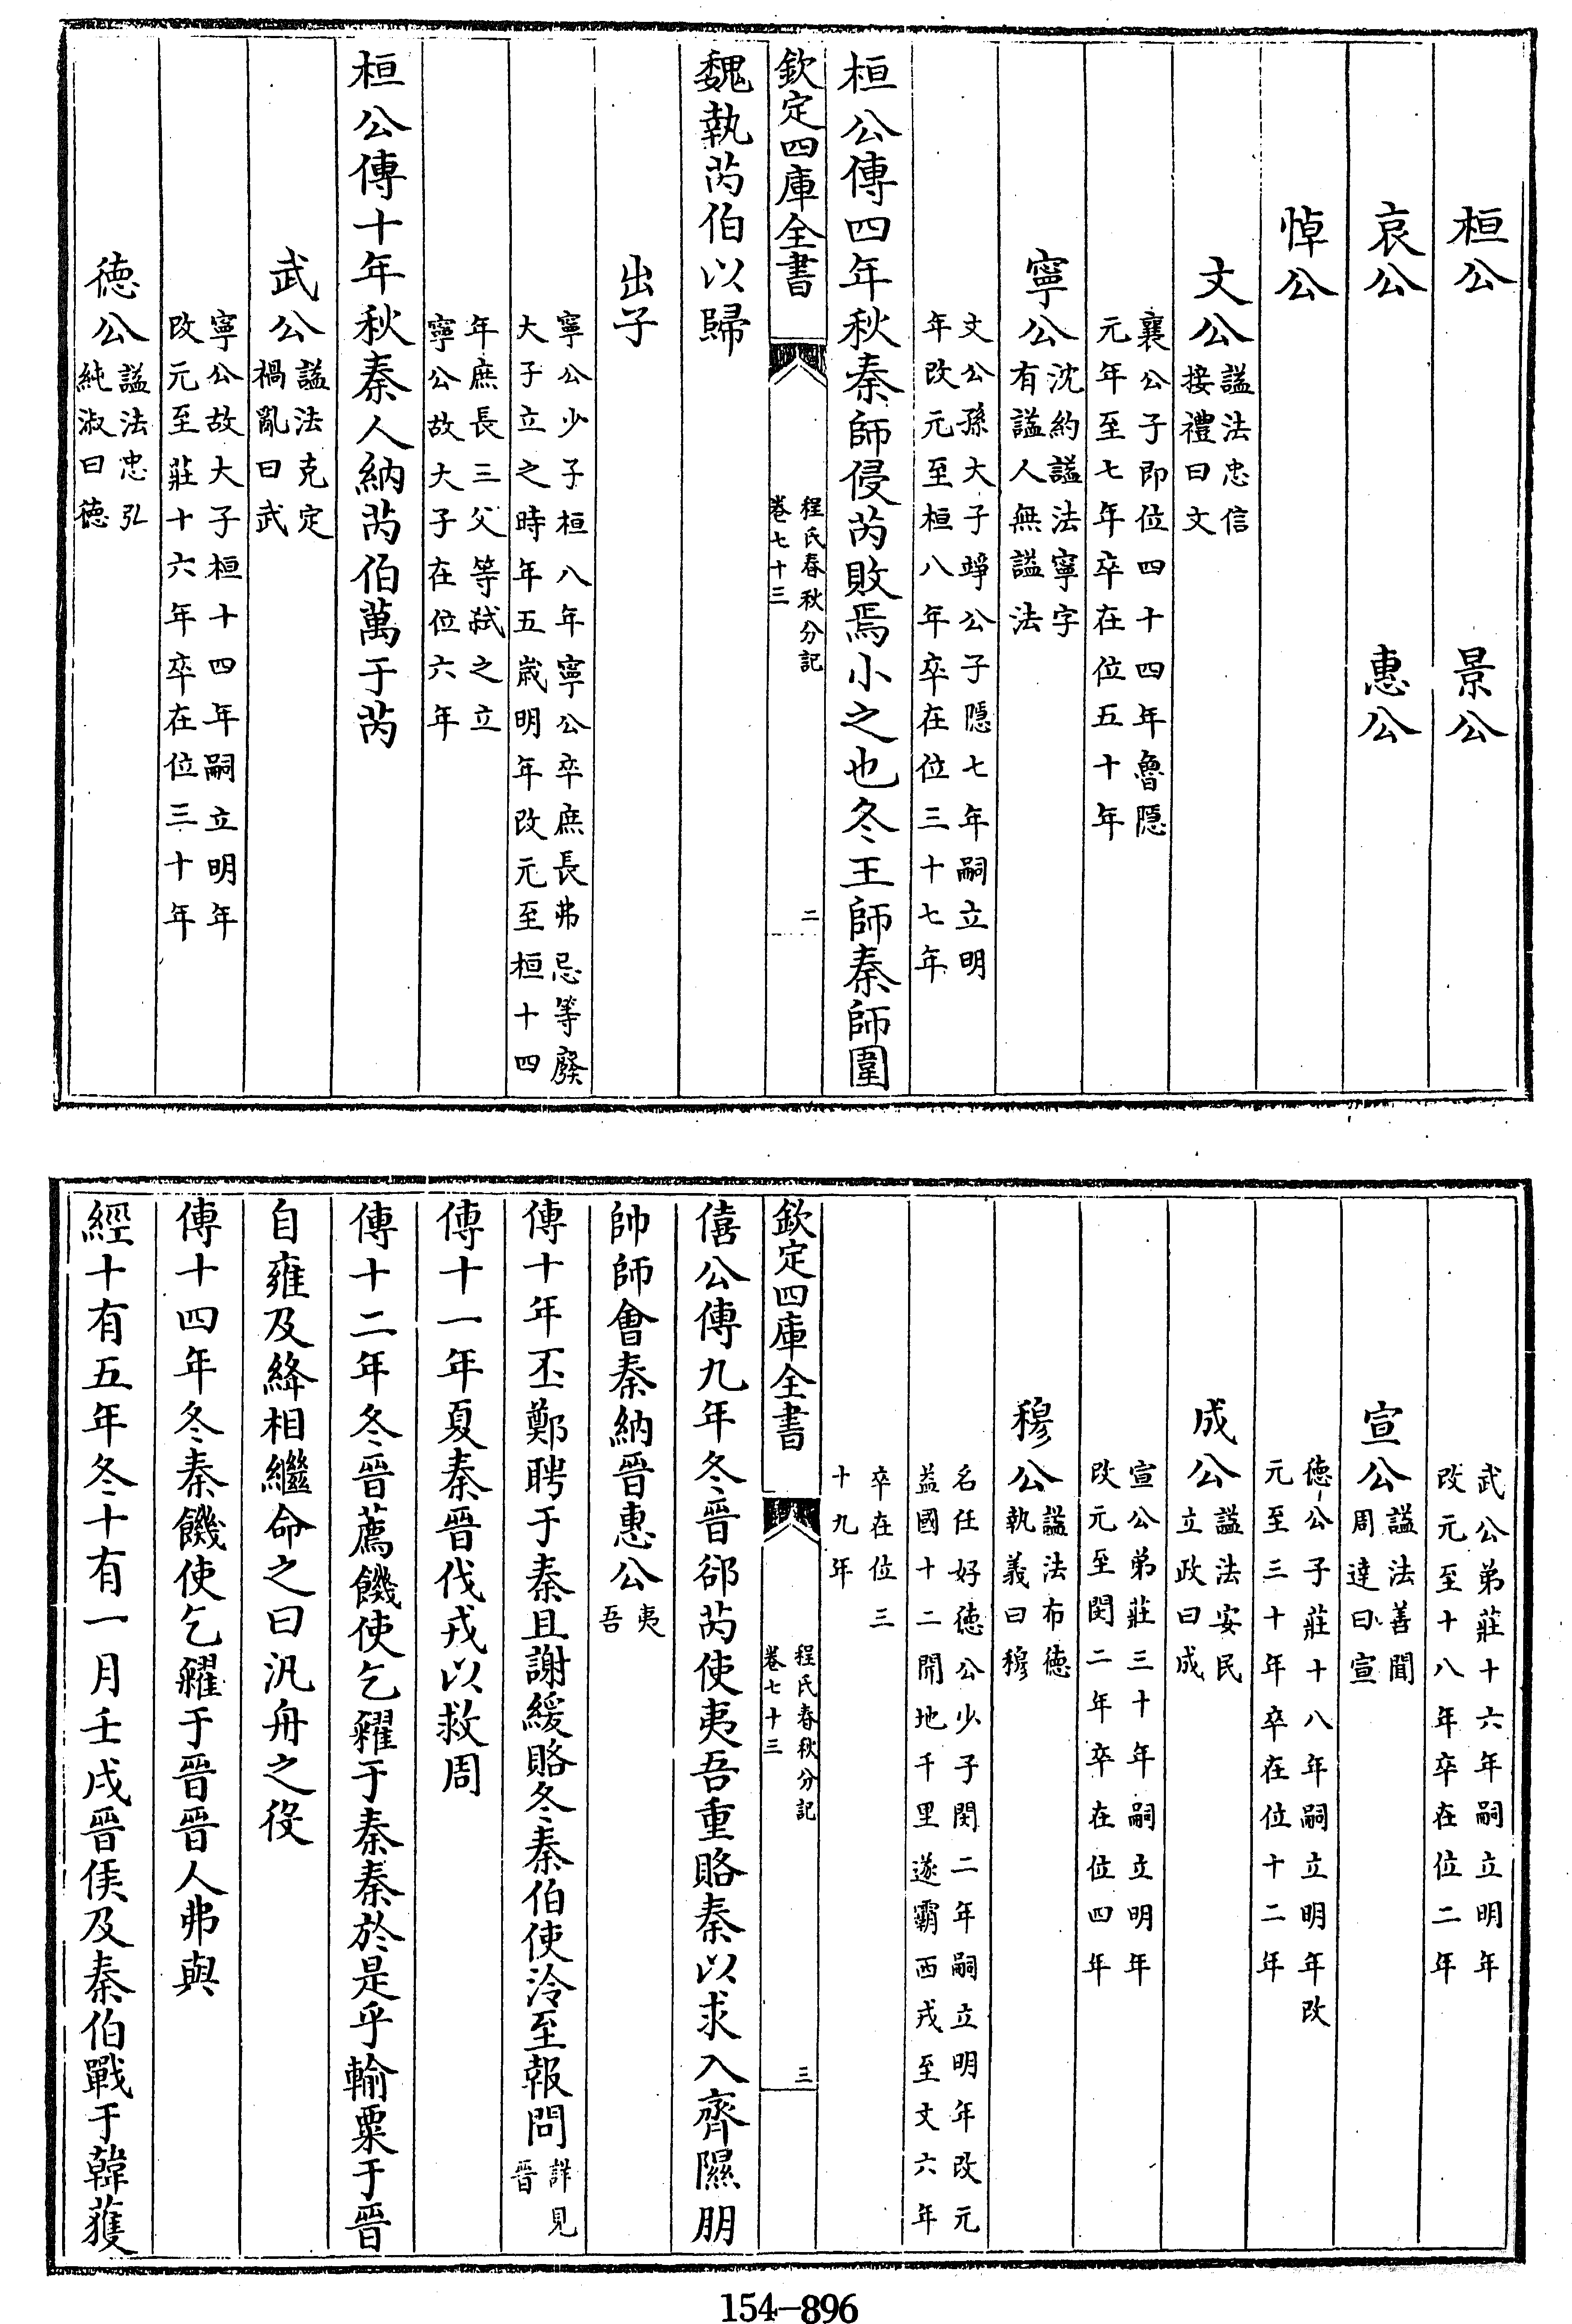 桓公　景公
哀公　惠公
悼公
文公謚法忠信接禮曰文
襄公子即位四十四年魯隱
元年至七年卒在位五十年
寧公沈約謚法寧字有謚人無謚法
文公孫大子竫公子隱七年嗣立明
年改元至桓八年卒在位三十七年
桓公傳四年秋秦師侵芮敗焉小之也冬王師秦師圍
欽定四庫全書
程氏春秋分記
卷七十三
二
魏執芮伯以歸
出子
寧公少子桓八年寧公卒庶長弗忌等廢
大子立之時年五歲明年改元至桓十四
年庶長三父等弑之立
寧公故大子在位六年
桓公傳十年秋秦人納芮伯萬于芮
武公謚法克定禍亂曰武
寧公故大子桓十四年嗣立明年
改元至莊十六年卒在位三十年
德公謚法忠弘純淑曰德
武公弟莊十六年嗣立明年
改元至十八年卒在位二年
宣公謚法善聞周達曰宣
德公子莊十八年嗣立明年改
元至三十年卒在位十二年
成公謚法安民立政曰成
宣公弟莊三十年嗣立明年
改元至閔二年卒在位四年
穆公謚法布德執義曰穆
名任好德公少子閔二年嗣立明年改元
益國十二開地千里遂霸西戎至文六年
卒在位三
十九年
欽定四庫全書
程氏春秋分記
卷七十三
三
僖公傳九年冬晉郤芮使夷吾重賂秦以求入齊隰朋
帥師會秦納晉惠公夷吾
傳十年丕鄭聘于秦且謝緩賂冬秦伯使泠至報問詳見晉
傳十一年夏秦晉伐戎以救周
傳十二年冬晉薦饑使乞糴于秦秦於是乎輸粟于晉
自雍及絳相繼命之曰汎舟之役
傳十四年冬秦饑使乞糴于晉晉人弗與
經十有五年冬十有一月壬戌晉侯及秦伯戰于韓獲
154-896